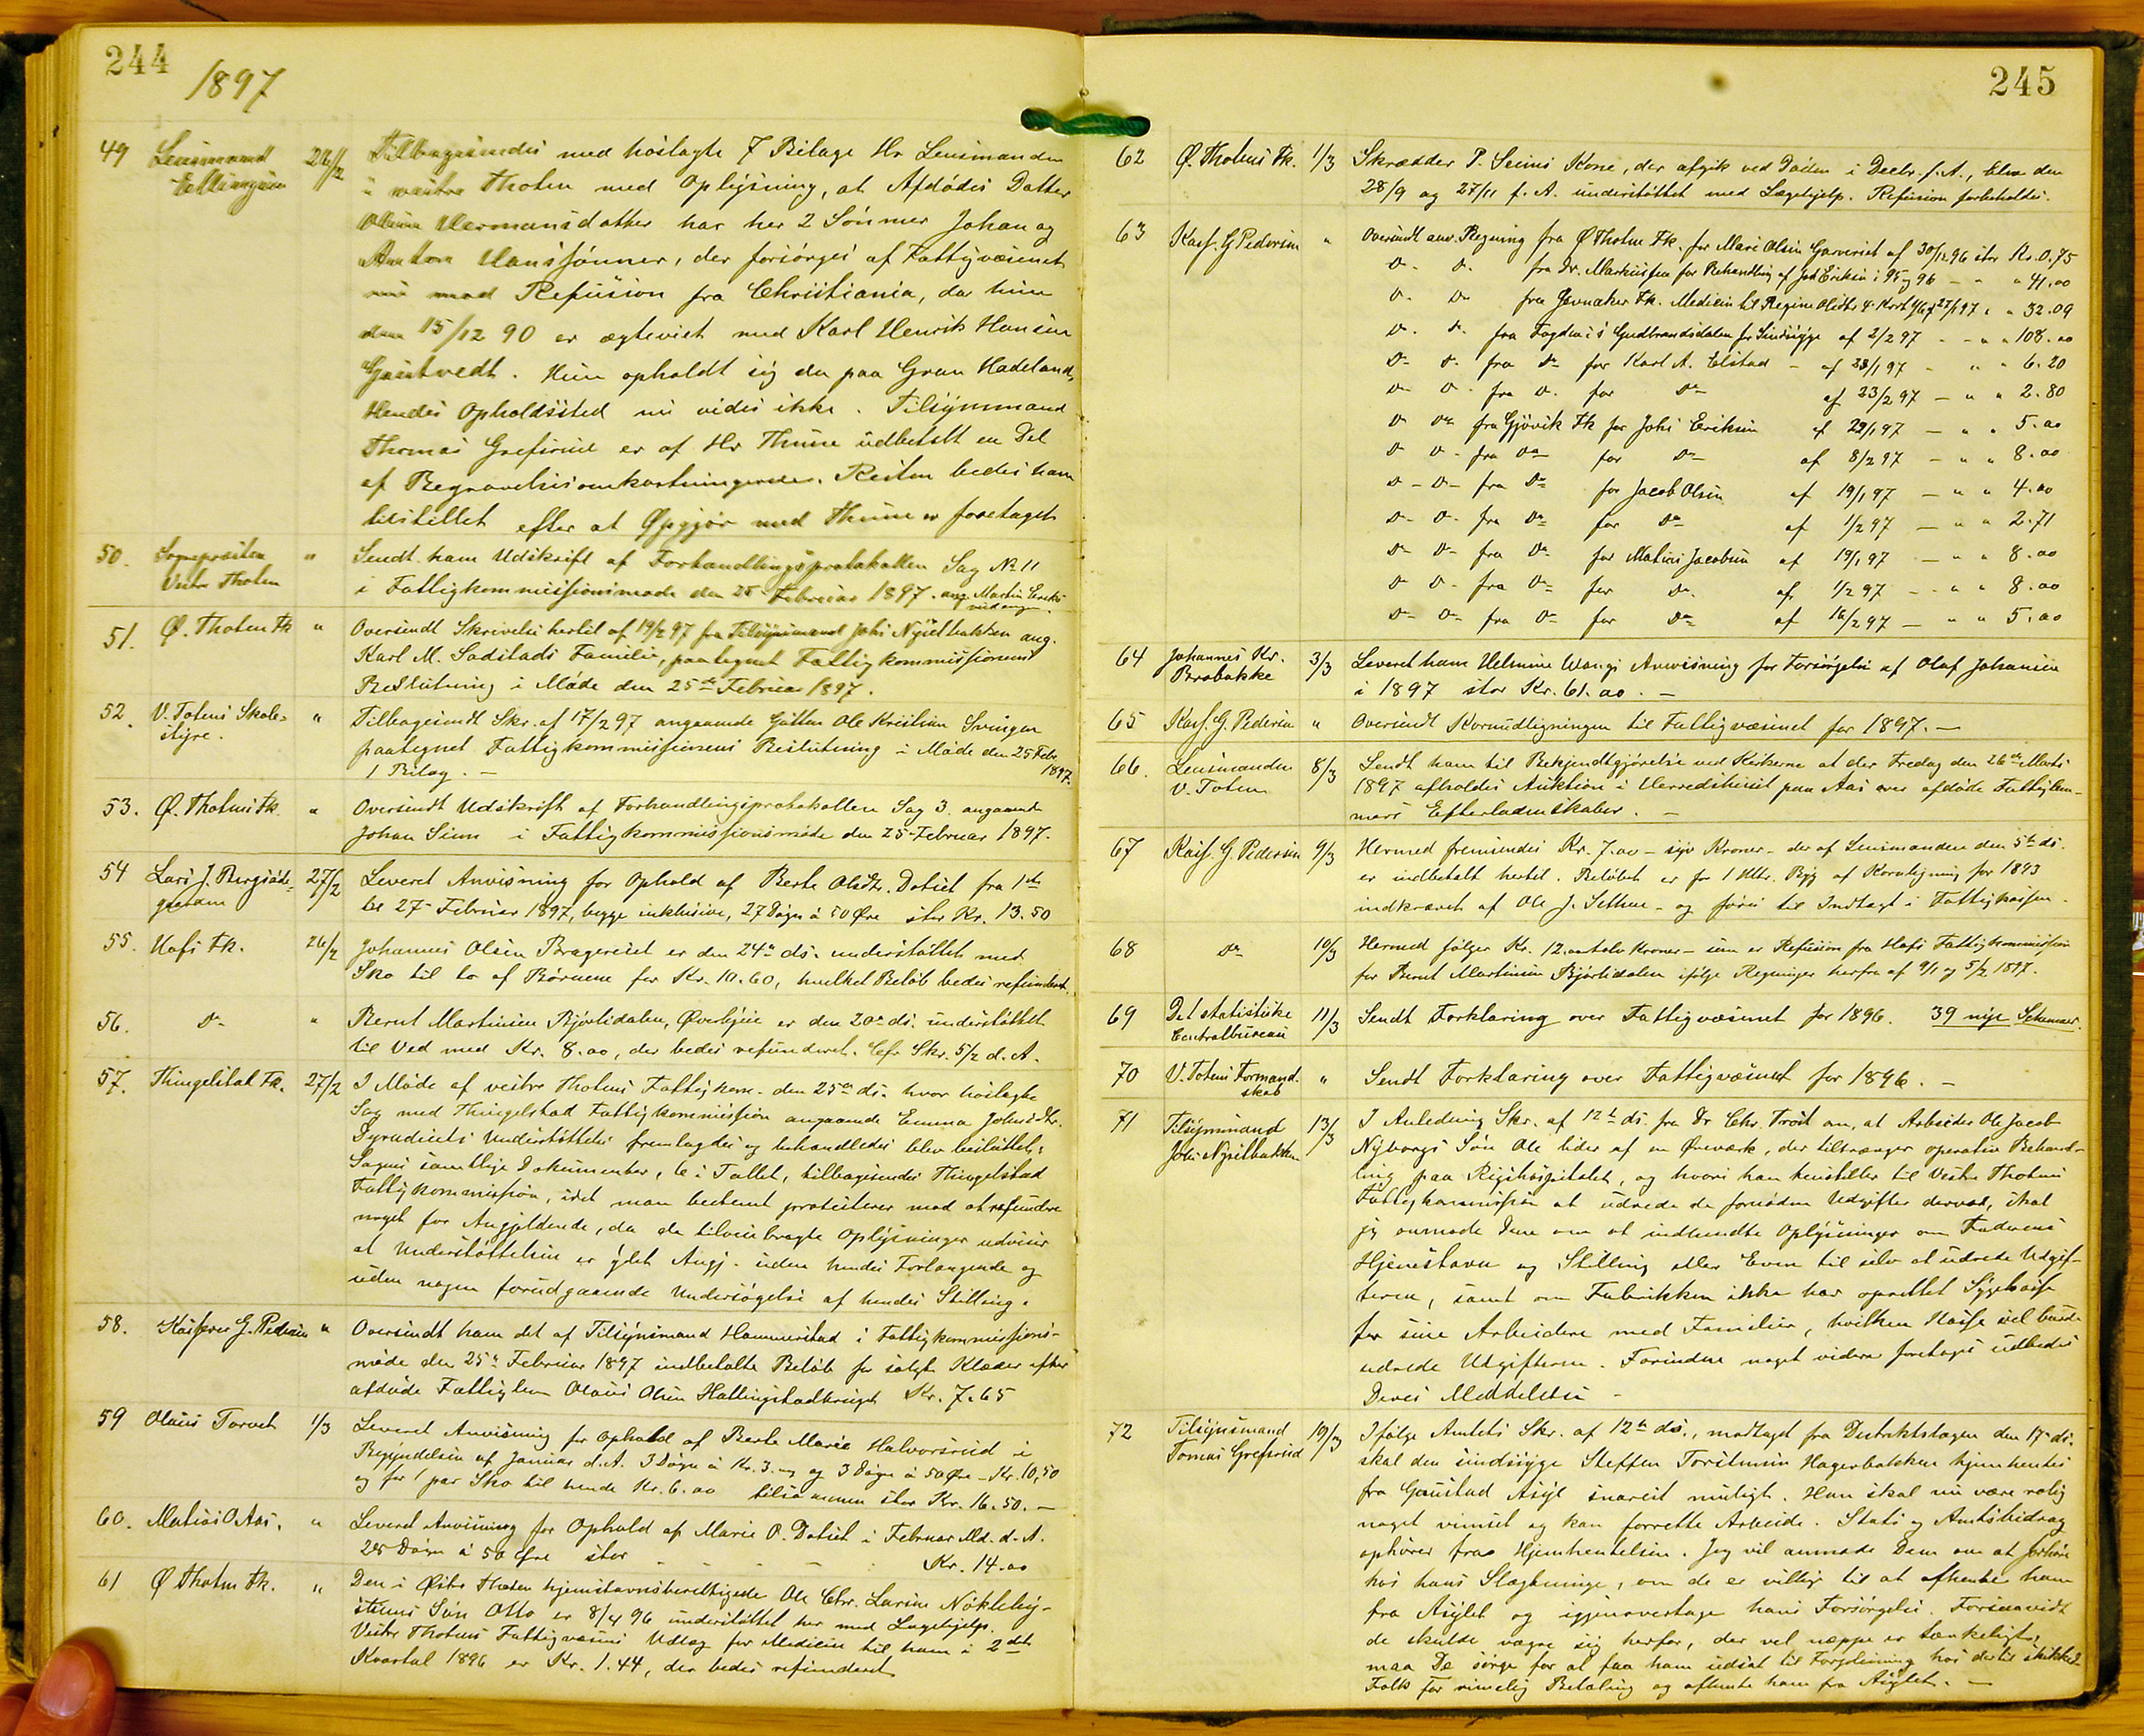 244
1897
49 Lensmand 26/2 Tilbagesendes med hoslagte 7 Bilage Hr Lensmanden
Ellingsen i vestre Thoten med Oplysning, at Afdødes Datter
Hermansdatter har her 2 Sønner Johan og
Anton Hanssønner, der forsørges af Fattigvæsenet
nu mod Refusion fra Christiania, da hun
den 15/12 90 er ægteviet med Karl Henrik Hansen
Hun opholdt sig da paa Gran Hadeland,
Hendes Opholdssted nu vides ikke. Tilsynsmand
Thomas Grefsrud er af Hr Thune udbetalt en Del
af Begravelsesomkostningerne. Resten bedes ham
tilstillet efter at Opgjør med Thune er foretaget
50. Sognepresten " Sendt ham Udskrift af Forhandlingsprotokollen Sag No 11
Vestre Thoten i Fattigkommissionsmøde den 25 Februar 1897. ang. Martin
51. Ø. Thoten Fk " Oversendt Skrivelse hertil af 19/2 97 fra Tilsynsmand Johs Nysetbakken ang.
Karl M. Sadstads Familie, paategnet Fattigkommissionens
Beslutning i Møde den 25de Februar 1897.
52. V. Totens Skole= " Tilbagesendt Skr. af 17/2 97 angaaende Gutten Ole Kristian Svingen
styre. paategnet Fattigkommissionens Beslutning i Møde den 25 Febr.
1 Bilag. — 1897.
53. Ø. Thotens Fk. " Oversendt Udskrift af Forhandlingsprotokollen Sag 3. angaaende
Johan Sinn i Fattigkommissionsmøde den 25 Februar 1897.
54 Lars J. 27/2 Leveret Anvisning for Ophold af Berte Olsdtr. Dotset fra 1ste
til 27 Februar 1897, begge inklusive, 27 Døgn à 50 Øre stor Kr. 13.50
55. Hofs Fk. 26/2 Johannes Olsen Bragereiet er den 24de ds. understøttet med
Sko til to af Børnene for Kr. 10.60, hvilket Beløb bedes refunderet.
56. Do " Bernt Martinsen Bjørlidalen, er den 20de ds. understøttet
til Ved med Kr. 8.00, der bedes refunderet. Cfr Skr. 5/2 d. A.
57. Thingelstad Fk. 27/2 I Møde af vestre Thotens Fattigkom. den 25de ds. hvor hoslagte
Sag med Thingelstad Fattigkommission angaaende Emma Johnsdtr.
Understøttelse fremlagdes og behandledes blev besluttet:
Sagens samtlige Dokumenter, 6 i Tallet, tilbagesendes Thingelstad
Fattigkommission, idet man bestemt protesterer mod at refundere
noget for Angjeldende, da de tilveiebragte Oplysninger udviser
at Understøttelsen er ydet Angj. uden hendes Forlangende og
uden nogen forudgaaende Undersøgelse af hendes Stilling.
58. Kasserer G. Pedersen " Oversendt ham det af Tilsynsmand Hammerstad i Fattigkommissions-
møde den 25de Februar 1897 indbetalte Beløb for solgte Klæder efter
afdøde Fattiglem Olaus Olsen Kr. 7.65
59 Olaus Torvet 1/3 Leveret Anvisning for Ophold af Berte Marie Halvorsrud i
Begyndelsen af Januar d. A. 3 Døgn à Kr. 3. og 3 Døgn à 50 Øre – Kr. 10,50
og for 1 par Sko til hende Kr. 6.00 tilsammen stor Kr. 16.50. —
60. Matias O. Aas. " Leveret Anvisning for Ophold af Marie O. Dotset i Februar Md. d. A.
28 Døgn à 50 Øre stor Kr. 14.00
61 Ø Thoten Fk. " Den i Østre Thoten hjemstavnsberettigede Ole Chr. Larsen Nøkleby-
Søn Otto er 8/4 96 understøttet her med Lægehjelp.
Vestre Thotens Fattigvæsens Udlæg for Medicin til ham i 2det
Kvartal 1896 er Kr. 1.44, der bedes refunderet
245
62 Ø. Thotens Fk. 1/3 Skrædder P. Kone, der afgik ved Døden i Decbr. f. A., blev den
28/9 og 27/11 f. A. understøttet med Lægehjelp. Refusion forbeholdes.
63 Kass. G Pedersen " Oversendt anv. Regning fra Ø Thoten Fk. for Mari Olsen af 30/12 96 stor Kr. 0.75
D. D. fra Dr. Markussen for Behandling af Joh Eriksen i 95 og 96 – " " 41.00
D. Do fra Jevnaker Fk. Medicin til Regine Olsdtr 27/1 97 " " 32.09
D. D. fra Fogden i S Gudbrandsdalen for Sindssyge af 2/2 97 - " " 108.00
D D. fra Do for Karl A. Elstad – af 23/1 97 - " " 6.20
D D. fra D. for Do af 23/2 97 – " " 2.80
D Do fra Gjøvik Fk for Johs Eriksen af 29/1 97 – " " 5.00
D D. fra Do for Do af 8/2 97 – " " 8.00
D D fra Do for Jacob Olsen af 19/1 97 – " " 4.00
D. D. fra Do for Do af 1/2 97 – " " 2.71
D D fra Do for Matias Jacobsen af 19/1 97 – " " 8.00
D D. fra Do for Do. af 1/2 97 - " " 8.00
D D. fra D for Do af 16/2 97 – " " 5.00
64 Johannes Kr. 3/3 Leveret ham Helmine Wangs Anvisning for Forsørgelse af Olaf Johansen
Brobakke i 1897 stor Kr. 61.00. —
65 Kass. G. Pedersen " Oversendt Kornudligningen til Fattigvæsenet for 1897. —
66. Lensmanden 8/3 Sendt ham til Bekjendtgjørelse ved Kirkerne at der Fredag den 26de Marts
V. Toten 1897 afholdes Auktion i Herredshuset paa Aas over afdøde Fattiglem-
mers Efterladenskaber. —
67 Kass. G. Pedersen 9/3 Hermed fremsendes Kr. 7.00 – syv Kroner – der af Lensmanden den 5te ds.
er indbetalt hertil. Beløbet er for 1 Htlr. Byg af Kornligning for 1893
indkrævet af Ole J. – og føres til Indtægt i Fattigkassen.
68 Do 10/3 Hermed følger Kr. 12. – tolv Kroner – som er Refusion fra Hofs Fattigkommission
for Bernt Martinsen Bjørlidalen ifølge Regninger herfra af 9/1 og 5/2 1897.
69 Det statistiske 11/3 Sendt Forklaring over Fattigvæsenet for 1896. 39 nye Schemaer.
Centralbureau
70 V. Totens Formand- " Sendt Forklaring over Fattigvæsenet for 1896. —
skab
71 Tilsynsmand 13/3 I Anledning Skr. af 12te ds. fra Dr Chr. om, at Arbeider Ole Jacob
Johs Nysetbakken Nyborgs Søn Ole lider af en Øreverk, der tiltrænger operativ Behand-
ling paa Rigshospitalet, og hvori han henstiller til Vestre Thotens
Fattigkommission at udrede de fornødne Udgifter derved, skal
jeg anmode Dem om at indhendte Oplysninger om Faderens
Hjemstavn og Stilling eller Evne til selv at udrede Udgif-
terne, samt om Fabrikken ikke har oprettet Sygekasse
for sine Arbeidere med Familier, hvilken Kasse vel burde
udrede Udgifterne. Forinden noget videre foretages udbedes
Deres Meddelelse –
72 Tilsynsmand 19/3 Ifølge Amtets Skr. af 12te ds., modtaget fra Distriktslægen den 17 ds.
Tomas Grefsrud skal den sindssyge Steffen Torstensen Hagerbakken hjemhentes
fra Gaustad Asyl snarest muligt. Han skal nu være rolig
noget vimset og kan forrette Arbeide. Stats og Amtsbidrag
ophører fra Hjemhentelsen. Jeg vil anmode Dem om at forhøre
hos hans Slægtninge, om de er villige til at afhente ham
fra Asylet og igjenovertage hans Forsørgelse. Forsaavidt
de skulde vægre sig herfor, der vel neppe er tænkeligt,
maa De sørge for at faa ham udsat til Forpleining hos dertil skikkede
Folk for rimelig Betaling og afhente ham fra Asylet. —